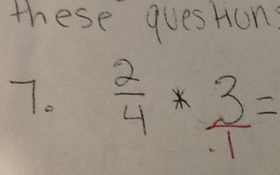 these questions
7. 2/4 * 3/1 =